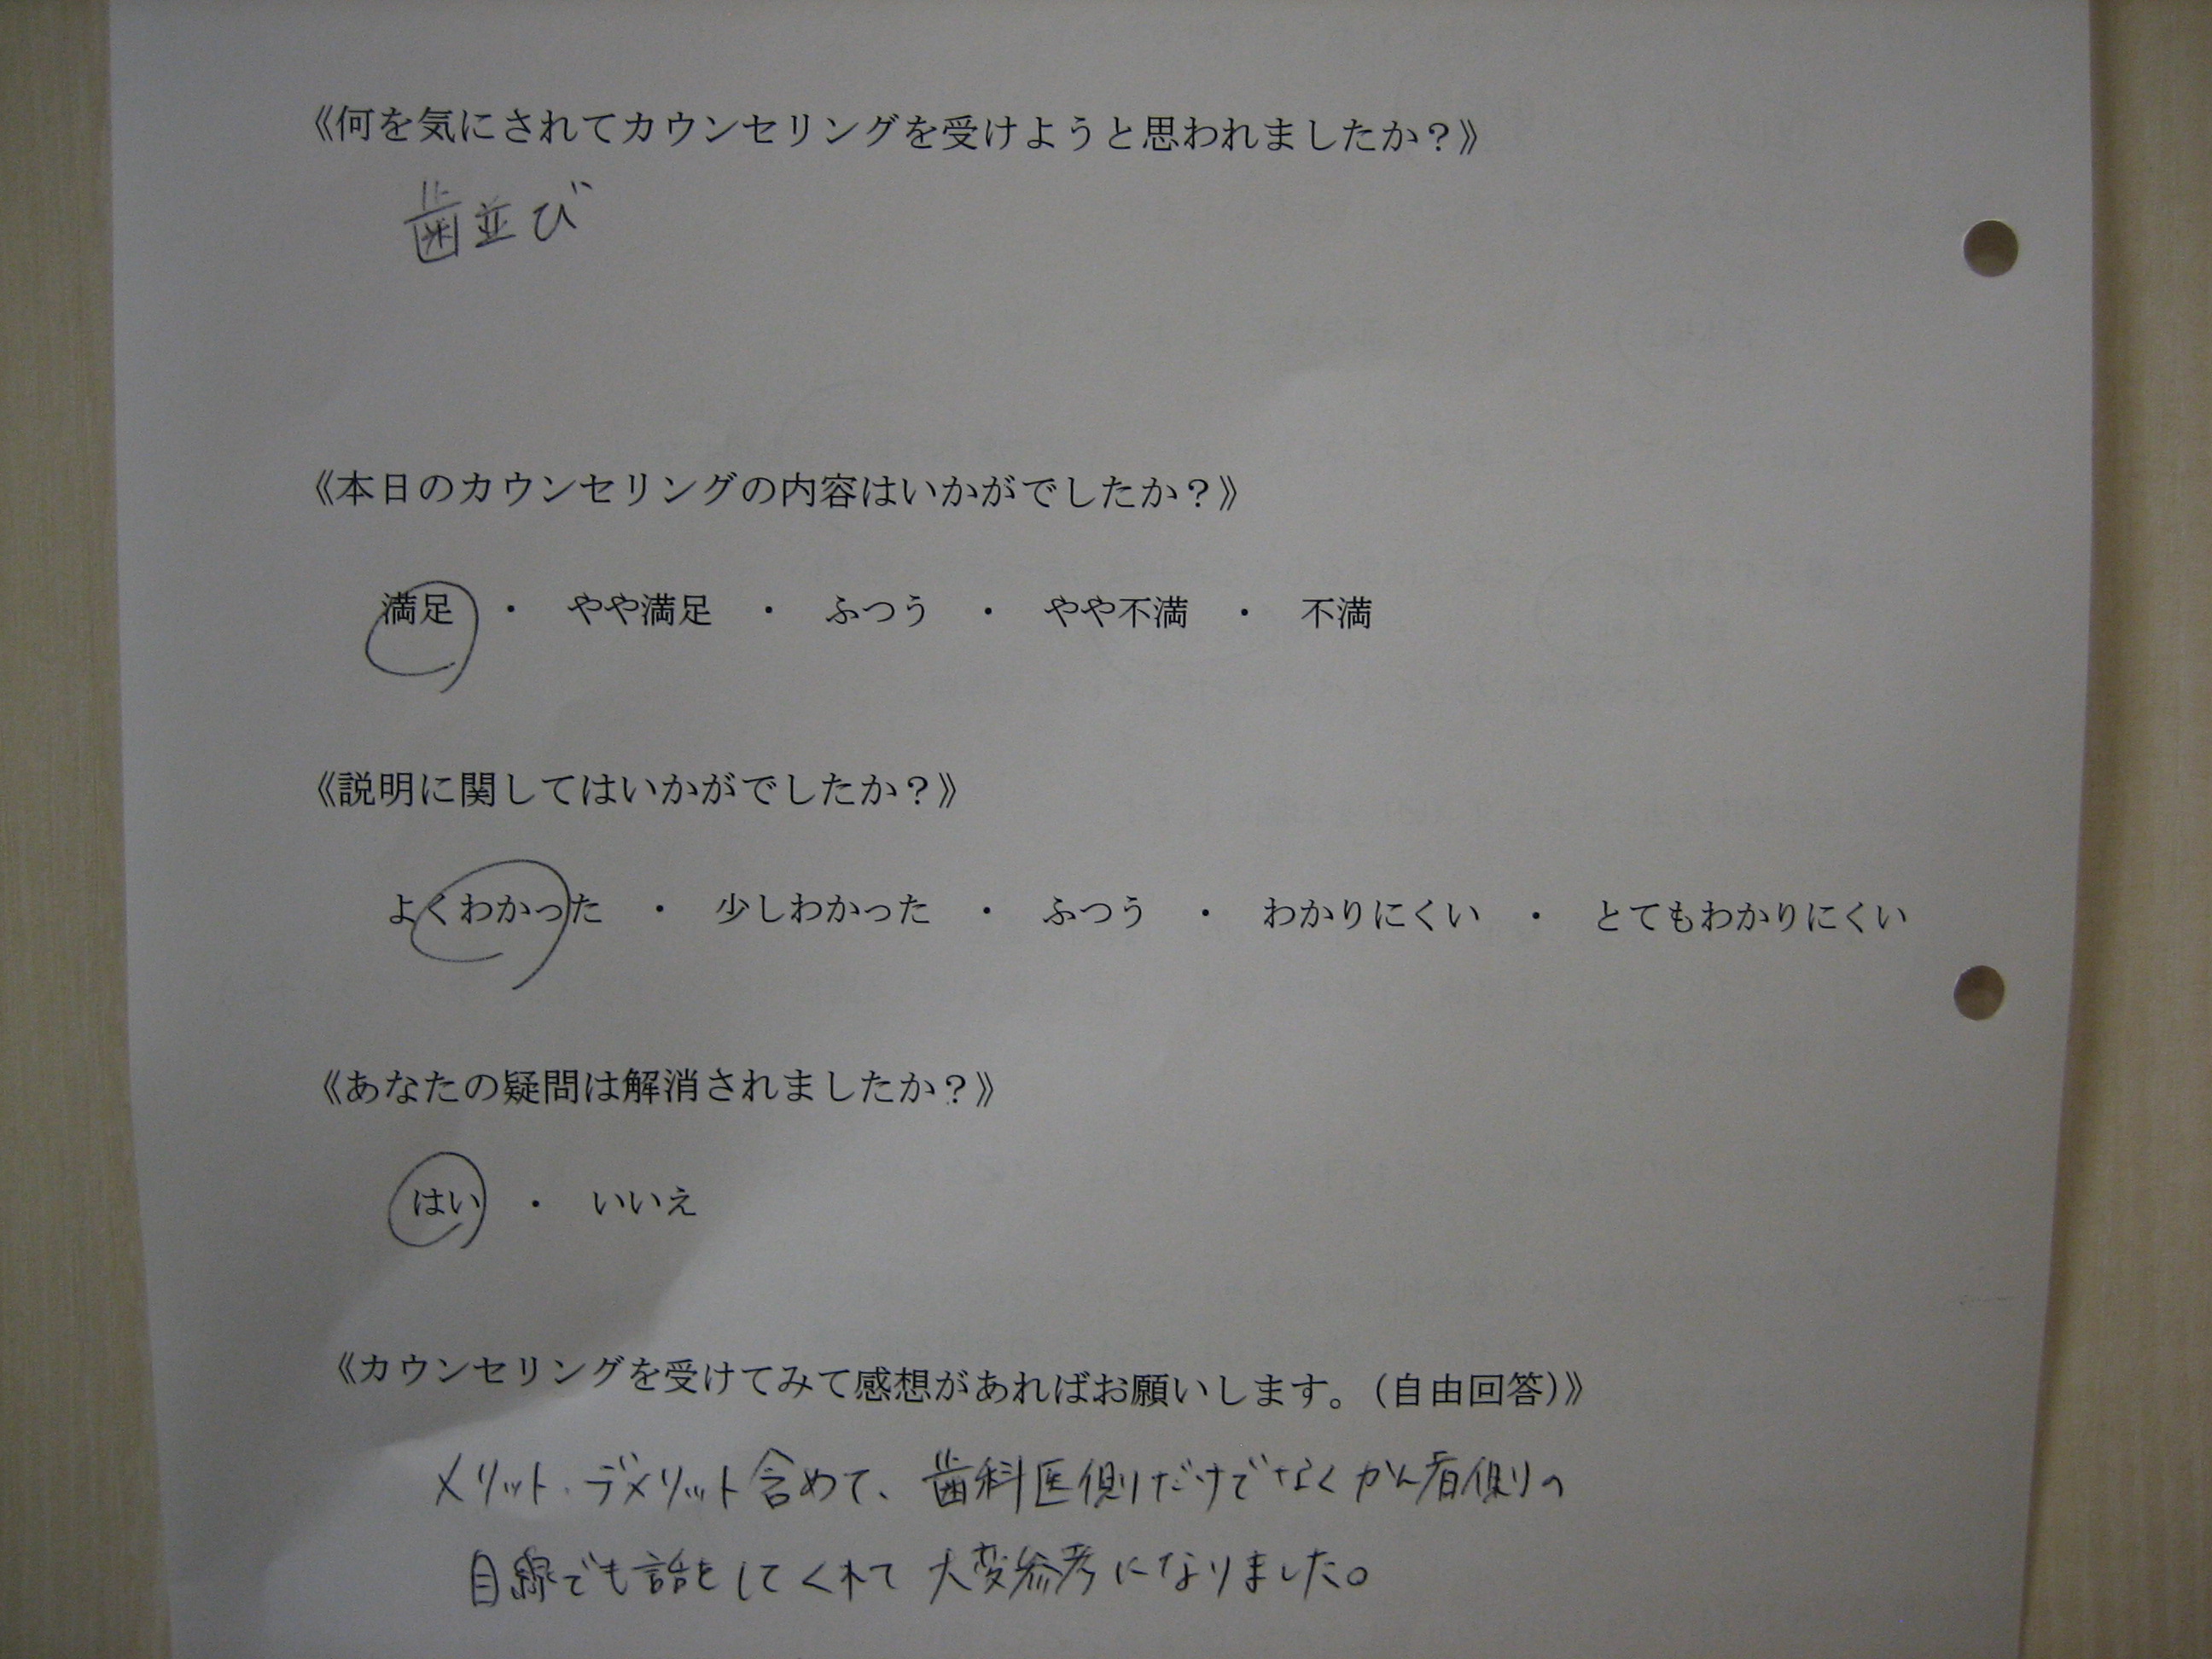 《何を気にされてカウンセリングを受けようと思われましたか？》
歯並び
《本日のカウンセリングの内容はいかがでしたか？》
満足 ・ やや満足 ・ ふつう ・ やや不満 ・ 不満
《説明に関してはいかがでしたか？》
よくわかった ・ 少しわかった ・ ふつう ・ わかりにくい ・ とてもわかりにくい
《あなたの疑問は解消されましたか？》
はい ・ いいえ
《カウンセリングを受けてみて感想があればお願いします。（自由回答）》
メリット・デメリット含めて、歯科医側だけでなくかん者側の
目線でも話をしてくれて大変参考になりました。